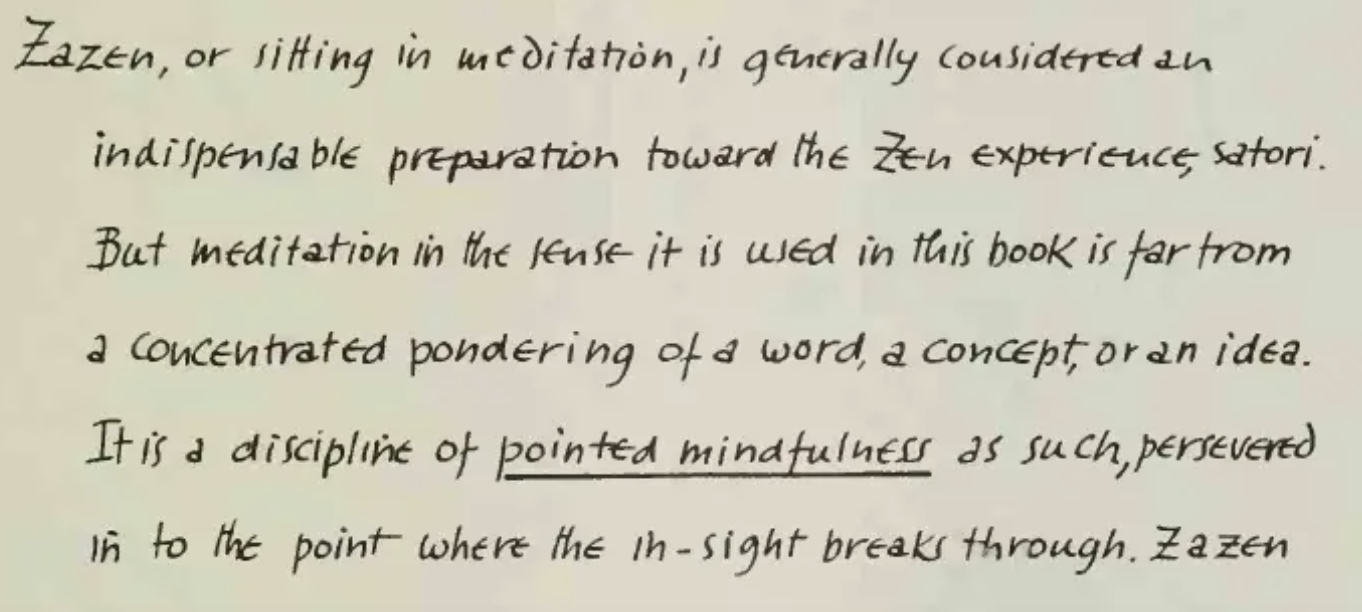 Zazen, or sitting in meditation, is generally considered an
indispensable preparation toward the Zen experience, satori.
But meditation in the sense it is used in this book is far from
a concentrated pondering of a word, a concept, or an idea.
It is a discipline of pointed mindfulness as such, persevered
in to the point where the in-sight breaks through. Zazen